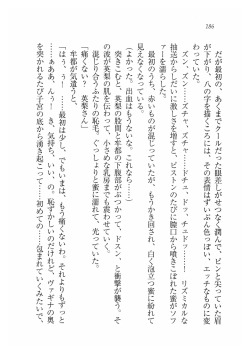 186
だが最初の、あくまでクールだった眼差しがせつなく潤んで、ピンと尖っていた眉
が下がり、八の字を描くころには、その表情はずいぶん色っぽい、エッチなものに変
わっていた。
ズン、ズン……ズチャ、ズチャ……ドチュ、ドッ、チュドッ……！　リズミカルな
抽送からしだいに激しさを増すと、ピストンのたびに膣口から噴きこぼれた蜜がソフ
ァーを濡らした。
最初のうち、赤いものが混じっていたが、もうかき回され、白く泡立つ蜜に紛れて
見えなくなっている。
（よかった。出血はもうないな。これなら……）
突きこむと、英梨の股間と牟都の下腹部がぶつかって、ドスン、と衝撃が襲う。そ
の波が英梨の肌を伝わって、小さめな乳房までも震わせていく。
混じり合うふたりの恥毛。ぐっしょりと蜜に濡れて、光っていた。
「痛くない？　英梨さん」
牟都が気遣うと、
「はっ、うぅ！　……最初は少し、でもいまは、もう痛くないわ。それよりもずっと
……ああぁ、んぅ！　き、気持ち、いい、の。恥ずかしいのだけれど、ヴァギナの奥
を突かれるたび子宮の底から湧き起こって……初めての……！　気まれていくみたいで、